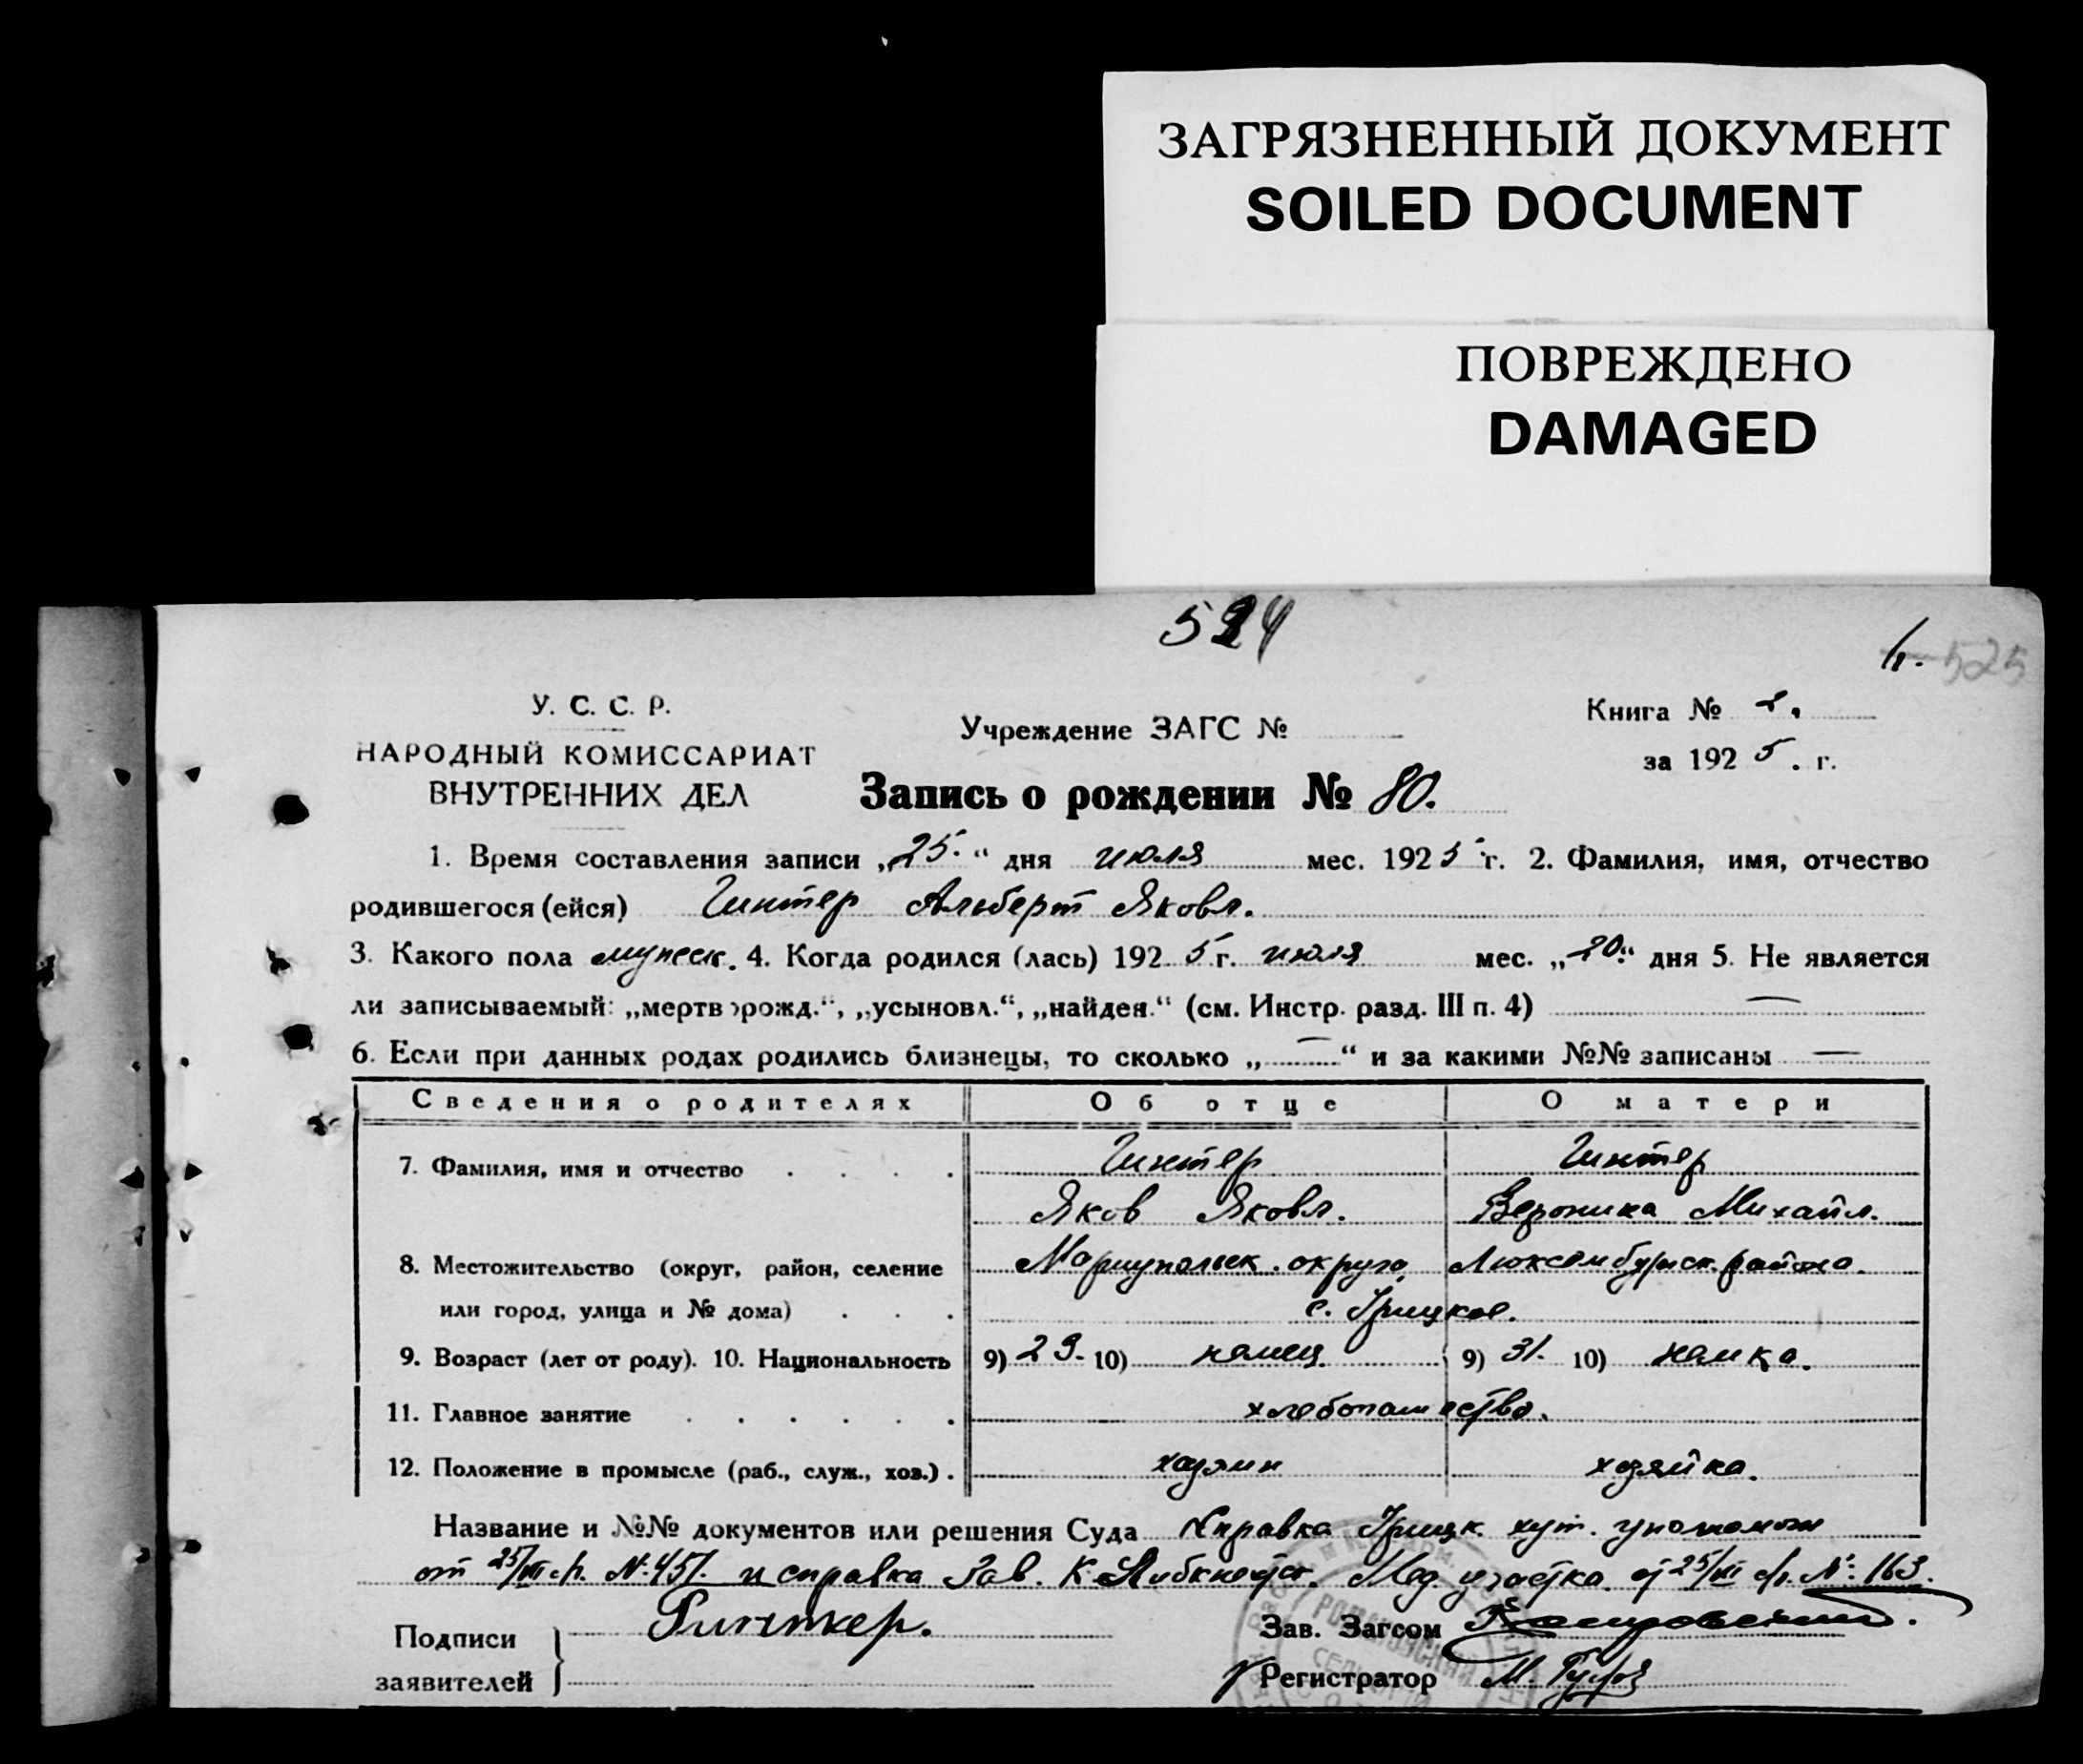 ЗАГРЯЗНЕННЫЙ ДОКУМЕНТ
SOILED DOCUMENT
ПОВРЕЖДЕНО
DAMAGED
524
525
У. С. С. Р.
НАРОДНЫЙ КОМИССАРИАТ
ВНУТРЕННИХ ДЕЛ
Учреждение ЗАГС №
Книга № 2.
за 1925. г.
Запись о рождении № 80.
1. Время составления записи „25.“ дня июля мес. 1925 г. 2. Фамилия, имя, отчество
родившегося (ейся) Гинтер Альберт Яковл.
3. Какого пола мужск. 4. Когда родился (лась) 1925 г. июля мес. „20“ дня 5. Не является
ли записываемый: „мертворожд.“, „усыновл.“, „найден.“ (см. Инстр. разд. III п. 4) —
6. Если при данных родах родились близнецы, то сколько „—“ и за какими №№ записаны —
Сведения о родителях Об отце О матери
7. Фамилия, имя и отчество . . . . Гинтер Гинтер
Яков Яковл. Вероника Михайл.
8. Местожительство (округ, район, селение Мариупольск. округа, Люксембургск. района.
или город, улица и № дома) . . . с. Грицкое.
9. Возраст (лет от роду). 10. Национальность 9) 29. 10) немец. 9) 31. 10) немка.
11. Главное занятие . . . . . . хлебопашество.
12. Положение в промысле (раб., служ., хоз.) . хозяин хозяйка.
Название и №№ документов или решения Суда Справка Грицк. хут. уполномоч
от 25/VII с/г. №457. и справка Зав. К. Либкнехтск. Мед. участка от 25/VII с/г. №: 163.
Подписи
заявителей
Гинтер.
Зав. Загсом
Регистратор М.
РОМАНОВСКИЙ